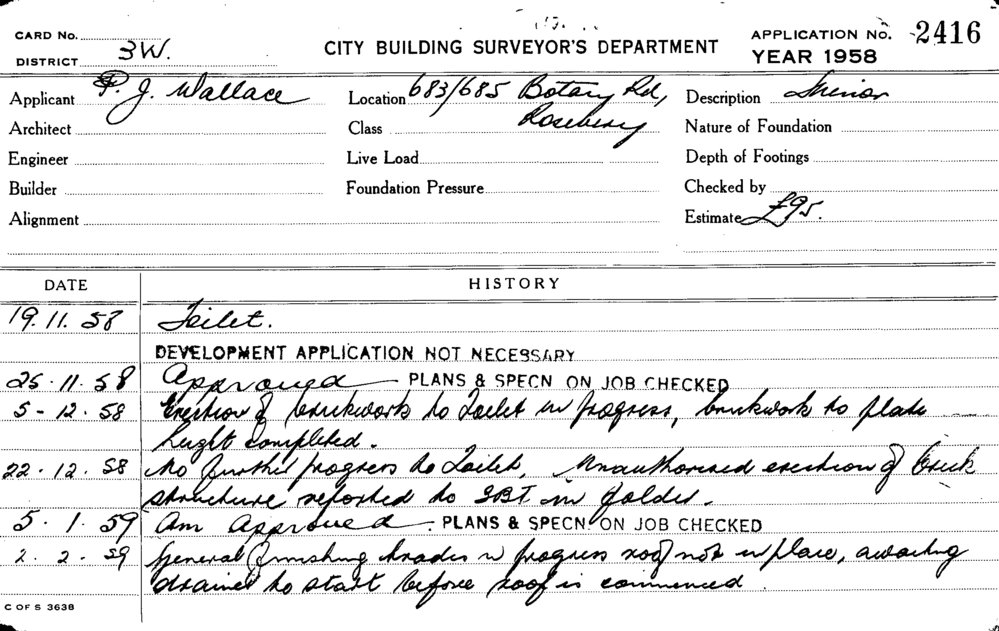 CARD No.
DISTRICT 3W.
CITY BUILDING SURVEYOR'S DEPARTMENT
APPLICATION No. 2416
YEAR 1958
Applicant P. J. Wallace
Location 683/685 Botany Rd,
Rosebery
Description Minor
Architect
Class
Nature of Foundation
Engineer
Live Load
Depth of Footings
Builder
Foundation Pressure
Checked by
Alignment
Estimate £95.
DATE HISTORY
19.11.58 Toilet.
DEVELOPMENT APPLICATION NOT NECESSARY
25.11.58 Approved PLANS & SPECN ON JOB CHECKED
5-12.58 Erection of brickwork to Toilet in progress, brickwork to plate
height completed.
22.12.58 No further progress to Toilet, Unauthorised erection of brick
structure reported to in folder.
5.1.59 Am Approved. PLANS & SPECN ON JOB CHECKED
2.2.59 General finishing trades in progress roof not in place, awaiting
drainer to start before roof is commenced.
C OF S 3638